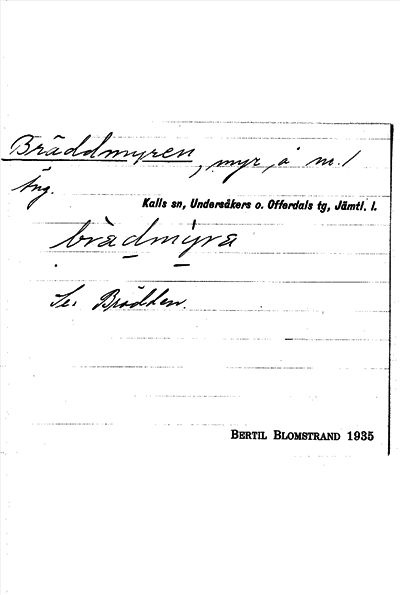 Bräddmyren, myr, å m. l
äng.
Kalls sn, Undersåkers o. Offerdals tg, Jämtl. l.
brädmýra
Se. Brädden.
BERTIL BLOMSTRAND 1935